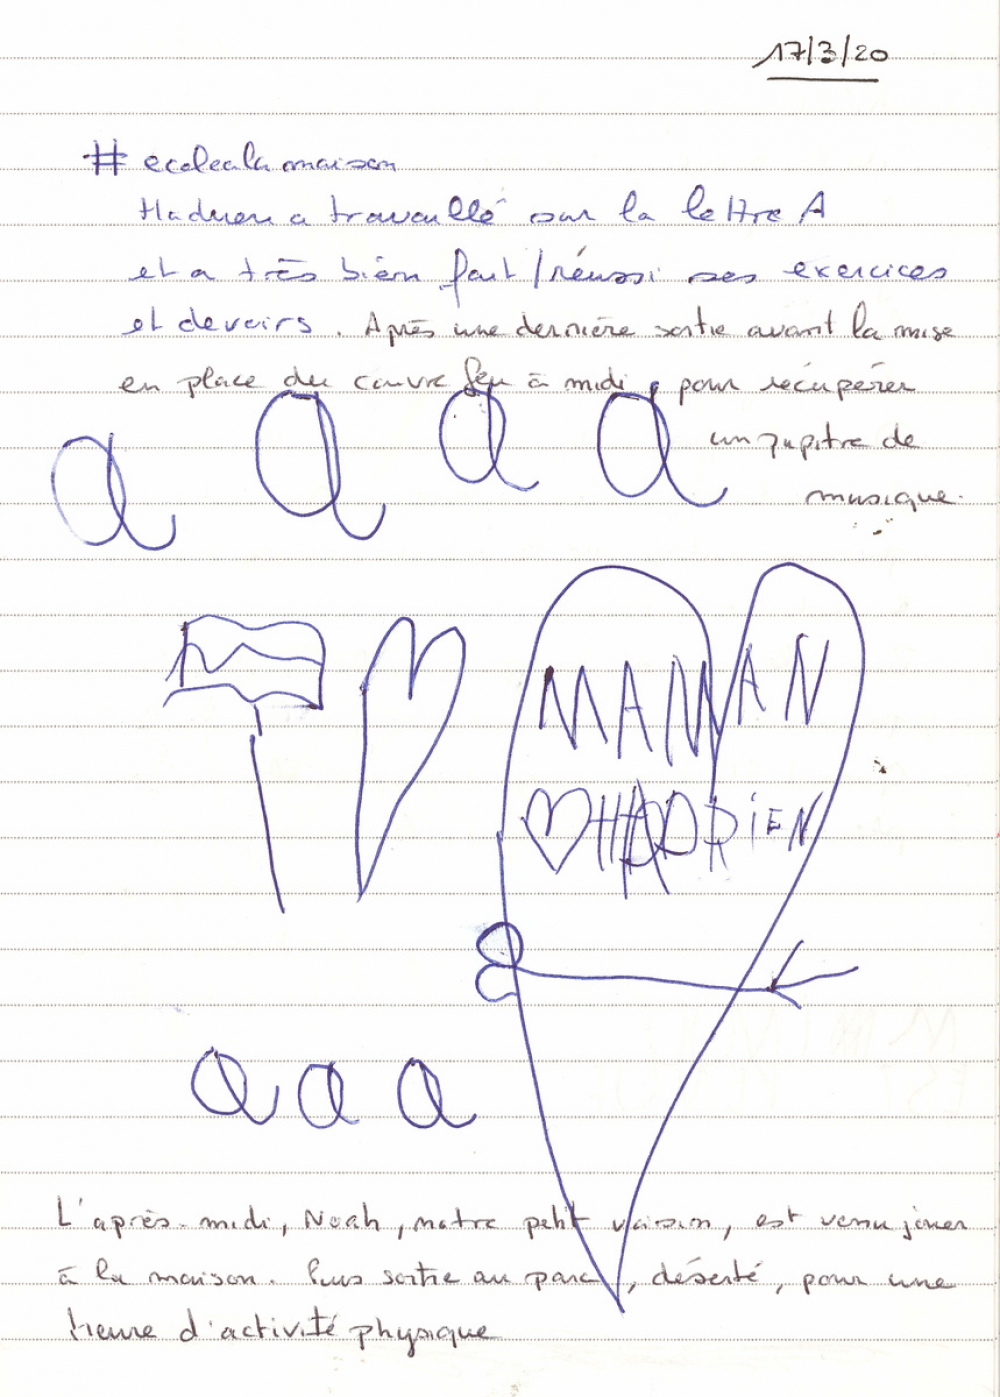 17/3/20
# ecolealamaison
Hadrien a travaillé sur la lettre A
et a très bien fait/réussi ses exercices
et devoirs. Après une dernière sortie avant la mise
en place du couvre feu à midi, pour récupérer
un pupitre de
musique.
a a a a
MAMAN
♡HADRIEN
a a a
L'après-midi, Noah, notre petit voisin, est venu jouer
à la maison. Puis sortie au parc, déserté, pour une
heure d'activité physique